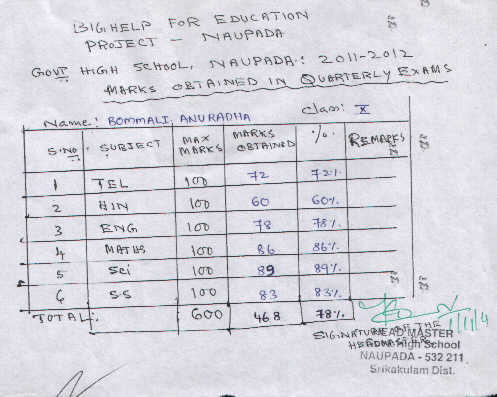 BIGHELP FOR EDUCATION
PROJECT - NAUPADA
GOVT HIGH SCHOOL, NAUPADA.: 2011-2012
MARKS OBTAINED IN QUARTERLY EXAMS
Name: BOMMALI, ANURADHA Class: X
S.NO. SUBJECT MAX MARKS MARKS OBTAINED %. REMARKS
1 TEL 100 72 72%
2 HIN 100 60 60%.
3 ENG 100 78 78%.
4 MATHS 100 86 86%.
5 Sci 100 89 89%.
6 S.S 100 83 83%.
TOTAL:. 600 468 78%.
SIGNATURE OF THE
HEADMASTER
HEAD MASTER
High School
NAUPADA - 532 211
Srikakulam Dist.